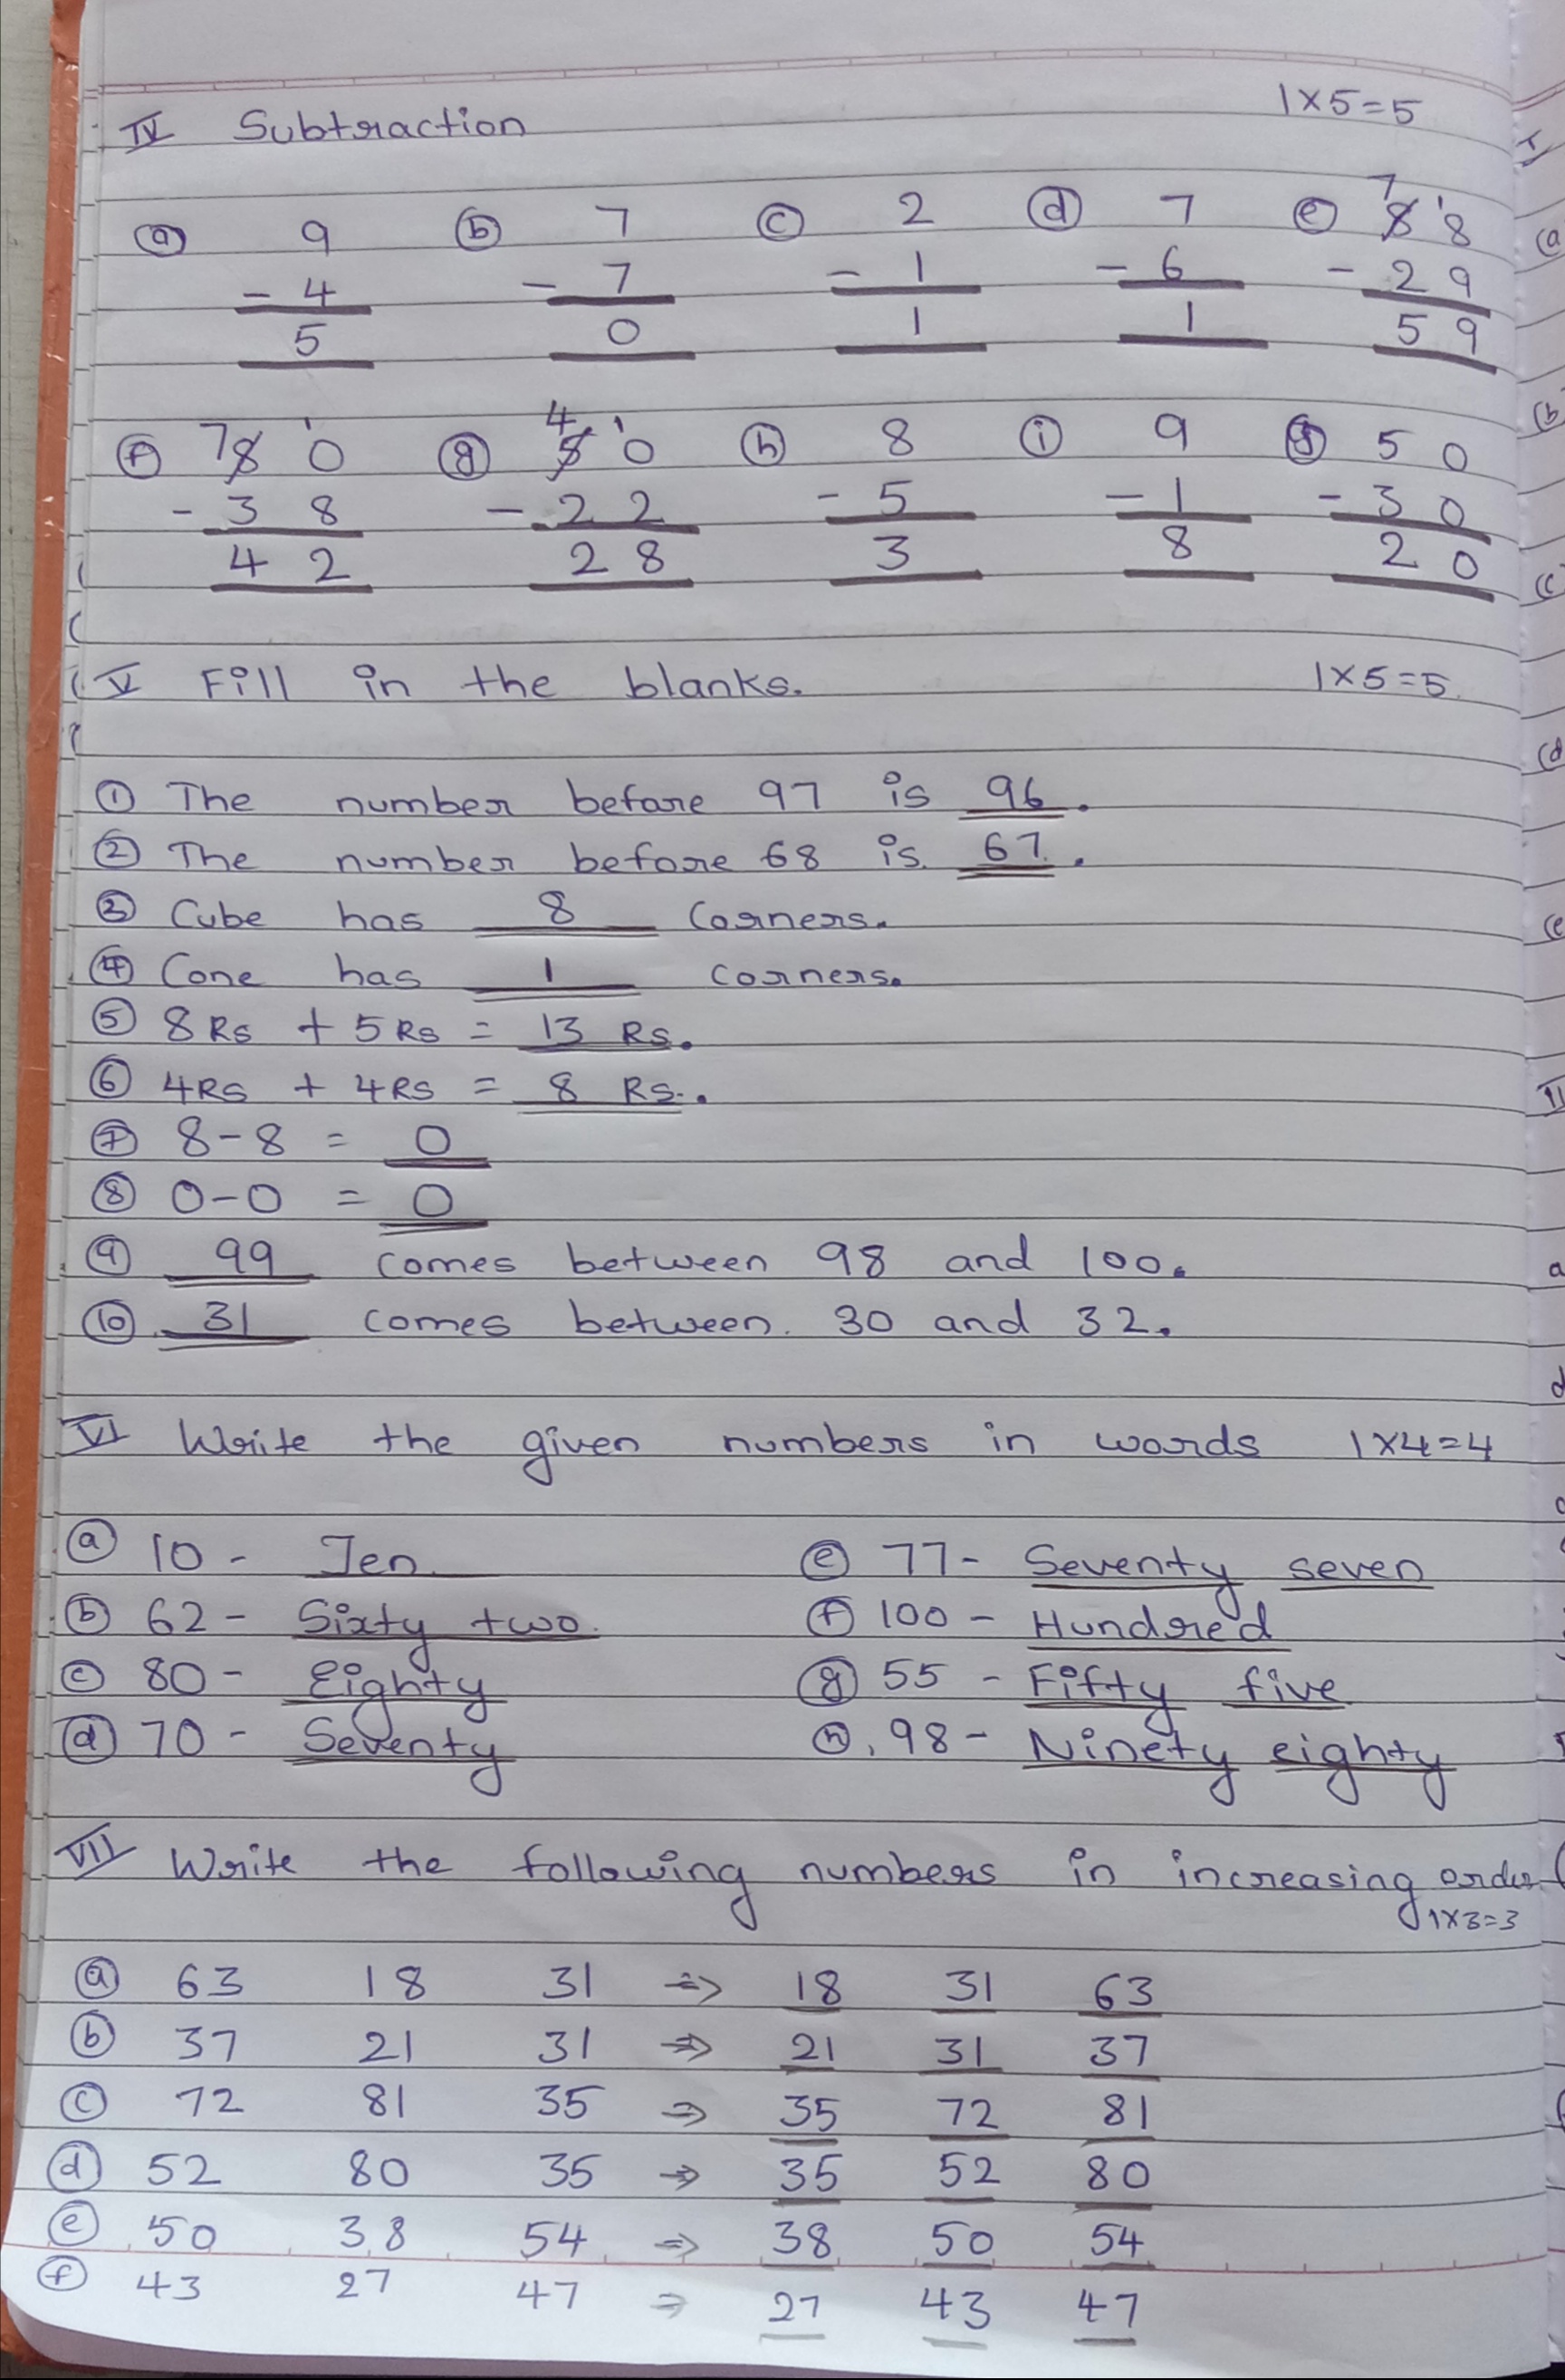 IV Subtraction 1×5=5
ⓐ 9 ⓑ 7 ⓒ 2 ⓓ 7 ⓔ 7 8 '8
- 4 - 7 - 1 - 6 - 29
5 0 1 1 59
ⓕ 7 8 '0 ⓖ 4 5 '0 ⓗ 8 ⓘ 9 ⓙ 50
- 38 - 22 - 5 - 1 - 30
42 28 3 8 20
V Fill in the blanks. 1×5=5
① The number before 97 is 96.
② The number before 68 is 67.
③ Cube has 8 Corners.
④ Cone has 1 corners.
⑤ 8 Rs + 5 Rs = 13 Rs.
⑥ 4 Rs + 4 Rs = 8 Rs.
⑦ 8-8 = 0
⑧ 0-0 = 0
⑨ 99 comes between 98 and 100.
⑩ 31 comes between 30 and 32.
VI Write the given numbers in words 1×4=4
ⓐ 10 - Ten ⓔ 77 - Seventy seven
ⓑ 62 - Sixty two ⓕ 100 - Hundred
ⓒ 80 - Eighty ⓖ 55 - Fifty five
ⓓ 70 - Seventy ⓗ 98 - Ninety eighty
VII Write the following numbers in increasing order
1×3=3
ⓐ 63 18 31 ⇒ 18 31 63
ⓑ 37 21 31 ⇒ 21 31 37
ⓒ 72 81 35 ⇒ 35 72 81
ⓓ 52 80 35 ⇒ 35 52 80
ⓔ 50 38 54 ⇒ 38 50 54
ⓕ 43 27 47 ⇒ 27 43 47